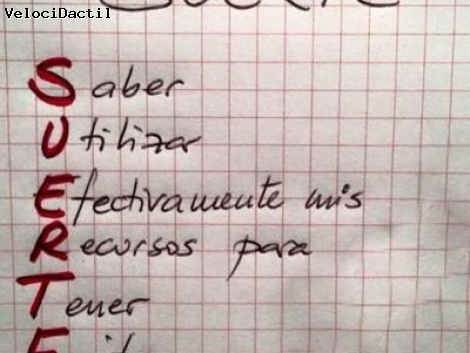 VelociDactil
Saber
Utilizar
Efectivamente mis
Recursos para
Tener